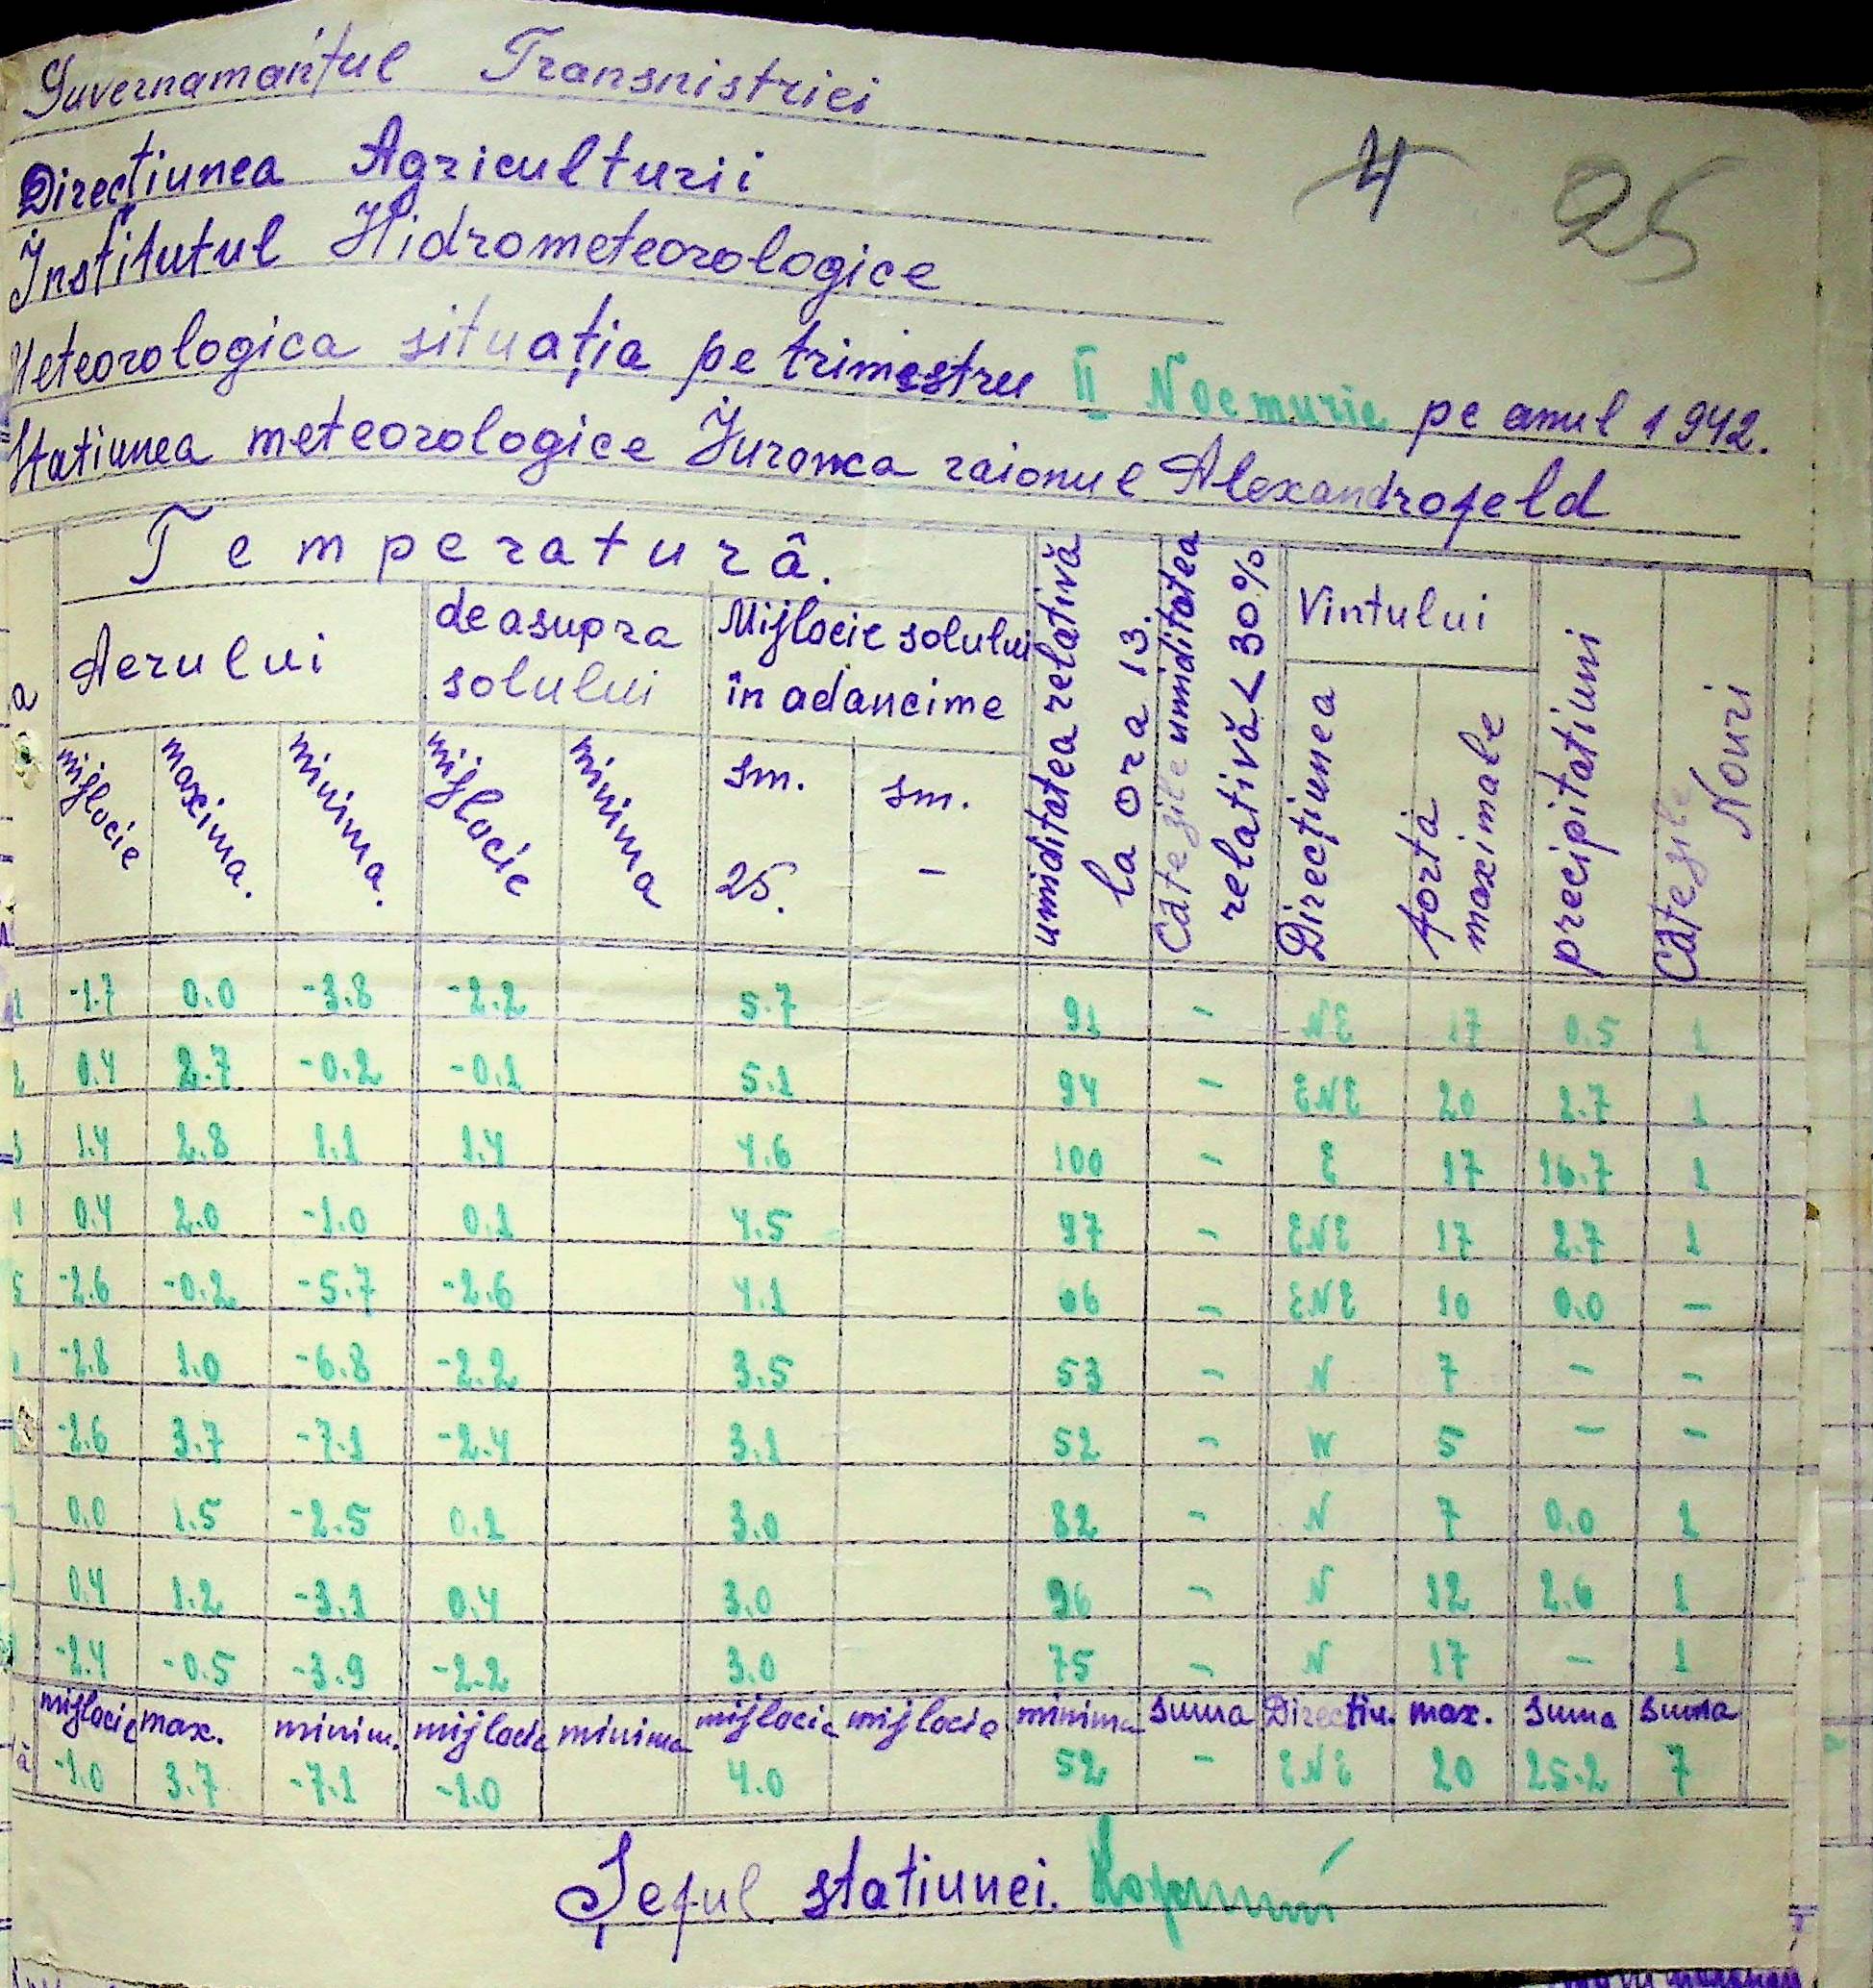 Guvernamântul Transnistriei
4 25
Direcțiunea Agriculturii
Institutul Hidrometeorologice
Meteorologica situația pe trimestru II Noemurie pe anul 1942.
Statiunea meteorologice Jurovca raionul Alexandrofeld
Temperatură.
Aerului
deasupra solului
Mijlocie solului în adancime
umiditatea relativă la ora 13.
Câte zile umiditatea relativă < 30%
Vintului
precipitatiuni
Câte zile Nouri
mijlocie maxima. minima. mijlocie minima sm. 25. sm. – Direcțiunea forta maximale
1 -1.7 0.0 -3.8 -2.2 5.7 91 - NE 17 0.5 1
2 0.4 2.7 -0.2 -0.1 5.1 94 - ENE 20 2.7 1
3 1.4 2.8 1.1 1.4 4.6 100 - E 17 16.7 1
4 0.4 2.0 -1.0 0.1 4.5 97 - ENE 17 2.7 1
5 -2.6 -0.2 -5.7 -2.6 4.1 - ENE 10 0.0 –
-2.8 1.0 -6.8 -2.2 3.5 53 - N 7 - -
-2.6 3.7 -7.1 -2.4 3.1 52 - W 5 - -
0.0 1.5 -2.5 0.1 3.0 82 - N 7 0.0 1
0.4 1.2 -3.1 0.4 3.0 96 - N 12 2.6 1
-2.4 -0.5 -3.9 -2.2 3.0 75 - N 17 - 1
mijlocie max. minim. mijlocie minima mijlocie mijlocie minima suma Directiu. max. suma suma
-1.0 3.7 -7.1 -1.0 4.0 52 - ENE 20 25.2 7
Șeful statiunei.